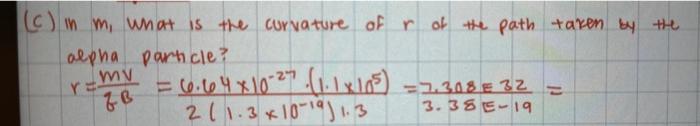 (C) in m, what is the curvature of r of the path taken by the
alpha particle?
r = mv/qB = 6.64 x 10^-27 · (1.1 x 10^5) / 2 (1.3 x 10^-19) 1.3 = 7.308E32 / 3.38E-19 =